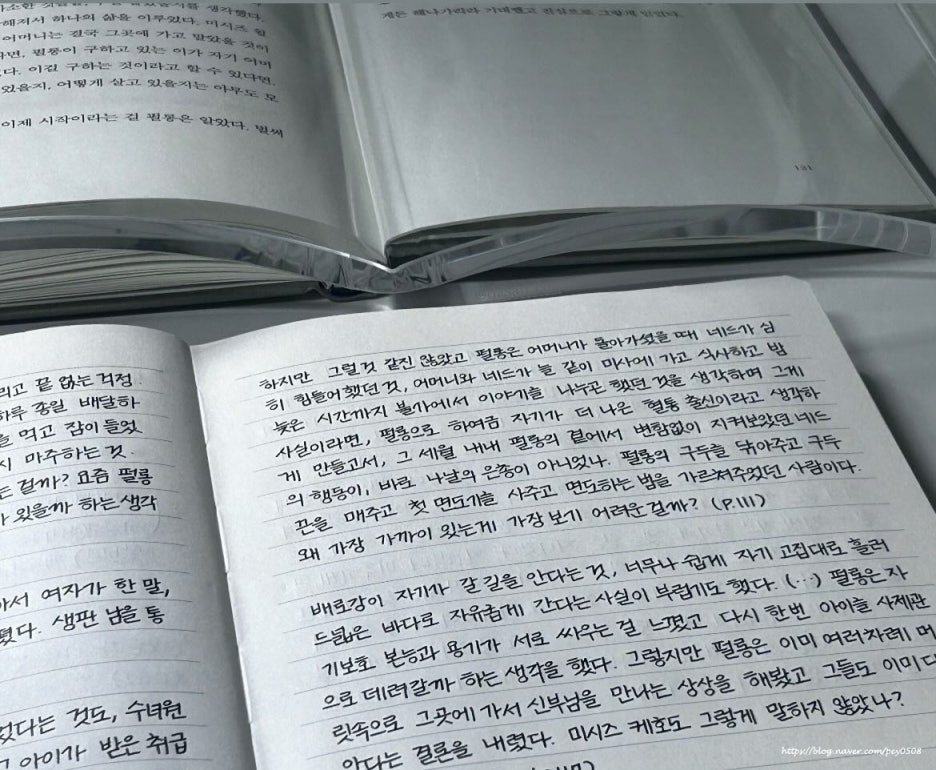 사소한
해져서 하나의 삶을 이루었다. 미시즈 윌
어머니는 결국 그곳에 가고 말았을 것이
라면, 펄롱이 구하고 있는 이가 자기 어머
다. 이걸 구하는 것이라고 할 수 있다면.
있을지, 어떻게 살고 있을지는 아무도 모
이제 시작이라는 걸 펄롱은 알았다. 벌써
게든 해나가리라 기대했고 진심으로 그렇게 믿었다.
131
리고 끝 없는 걱정.
하루 종일 배달하
을 먹고 잠이 들었
시 마주하는 것.
는 걸까? 요즘 펄롱
가 있을까 하는 생각
아서 여자가 한 말,
렸다. 생판 남을 통
었다는 것도, 수녀원
그 아이가 받은 취급
하지만 그럴것 같진 않았고 펄롱은 어머니가 돌아가셨을 때 네드가 심
히 힘들어했던 것, 어머니와 네드가 늘 같이 미사에 가고 식사하고 밤
늦은 시간까지 불가에서 이야기를 나누곤 했던 것을 생각하며 그게
사실이라면, 펄롱으로 하여금 자기가 더 나은 혈통 출신이라고 생각하
게 만들고서, 그 세월 내내 펄롱의 곁에서 변함없이 지켜보았던 네드
의 행동이, 바로 나날의 은총이 아니었나. 펄롱의 구두를 닦아주고 구두
끈을 매주고 첫 면도기를 사주고 면도하는 법을 가르쳐주었던 사람이다.
왜 가장 가까이 있는게 가장 보기 어려운 걸까? (P.111)
배로강이 자기가 갈 길을 안다는 것, 너무나 쉽게 자기 고집대로 흘러
드넓은 바다로 자유롭게 간다는 사실이 부럽기도 했다. (···) 펄롱은 자
기보호 본능과 용기가 서로 싸우는 걸 느꼈고 다시 한번 아이를 사제관
으로 데려갈까 하는 생각을 했다. 그렇지만 펄롱은 이미 여러차례 머
릿속으로 그곳에 가서 신부님을 만나는 상상을 해봤고 그들도 이미 다
안다는 결론을 내렸다. 미시즈 케호도 그렇게 말하지 않았나?
https://blog.naver.com/pey0508